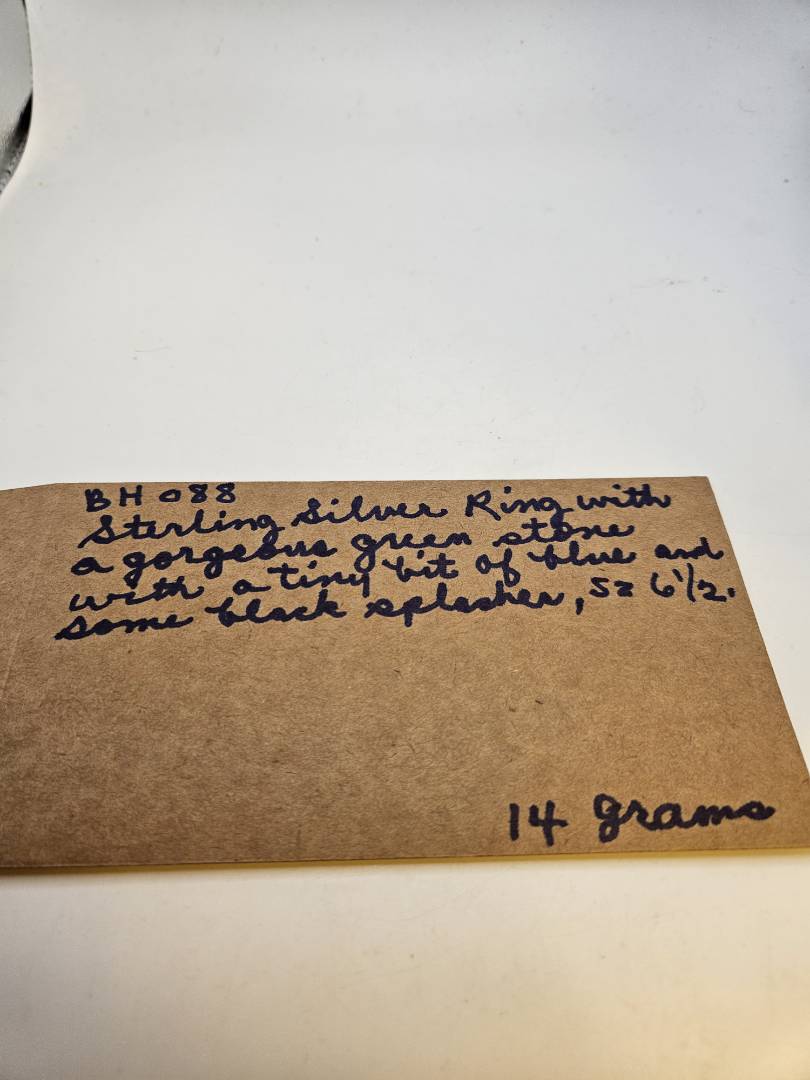 BH 088
Sterling Silver Ring with
a gorgeous green stone
with a tiny bit of blue and
some black splashes, Sz 6 1/2.
14 grams